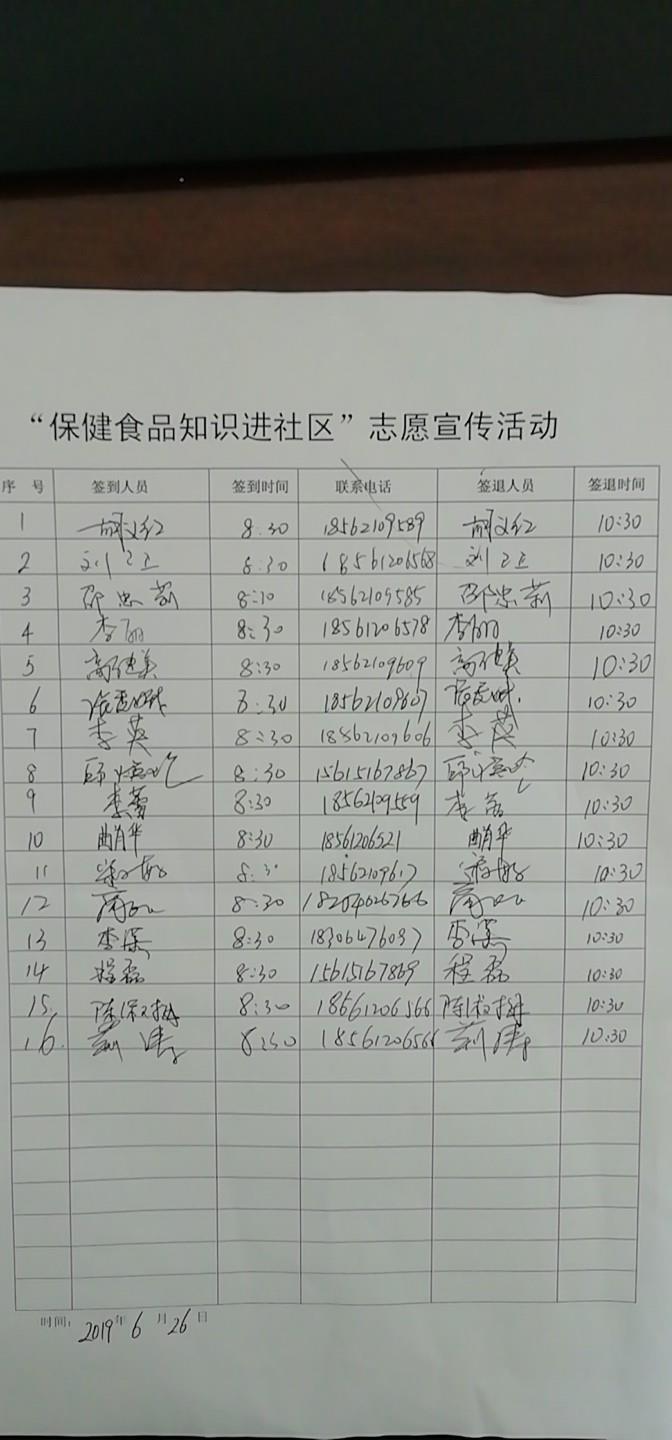 “保健食品知识进社区”志愿宣传活动
序 号 签到人员 签到时间 联系电话 签退人员 签退时间
1 胡文红 8:30 18562109589 胡文红 10:30
2 刘卫卫 8:30 18561206568 刘卫卫 10:30
3 邵忠莉 8:30 18562109585 邵忠莉 10:30
4 李丽 8:30 18561206578 李丽 10:30
5 高健美 8:30 18562109609 高健美 10:30
6 8:30 18562109607 10:30
7 李英 8:30 18562109606 李英 10:30
8 8:30 15615167867 10:30
9 李蕾 8:30 18562109559 李蕾 10:30
10 曲肖华 8:30 18561206521 曲肖华 10:30
11 8:30 18562109617 10:30
12 8:30 18204626766 10:30
13 李深 8:30 18306476037 李深 10:30
14 程磊 8:30 15615167869 程磊 10:30
15. 8:30 18561206566 10:30
16. 荆涛 8:30 18561206566 荆涛 10:30
时间: 2019年 6 月 26 日